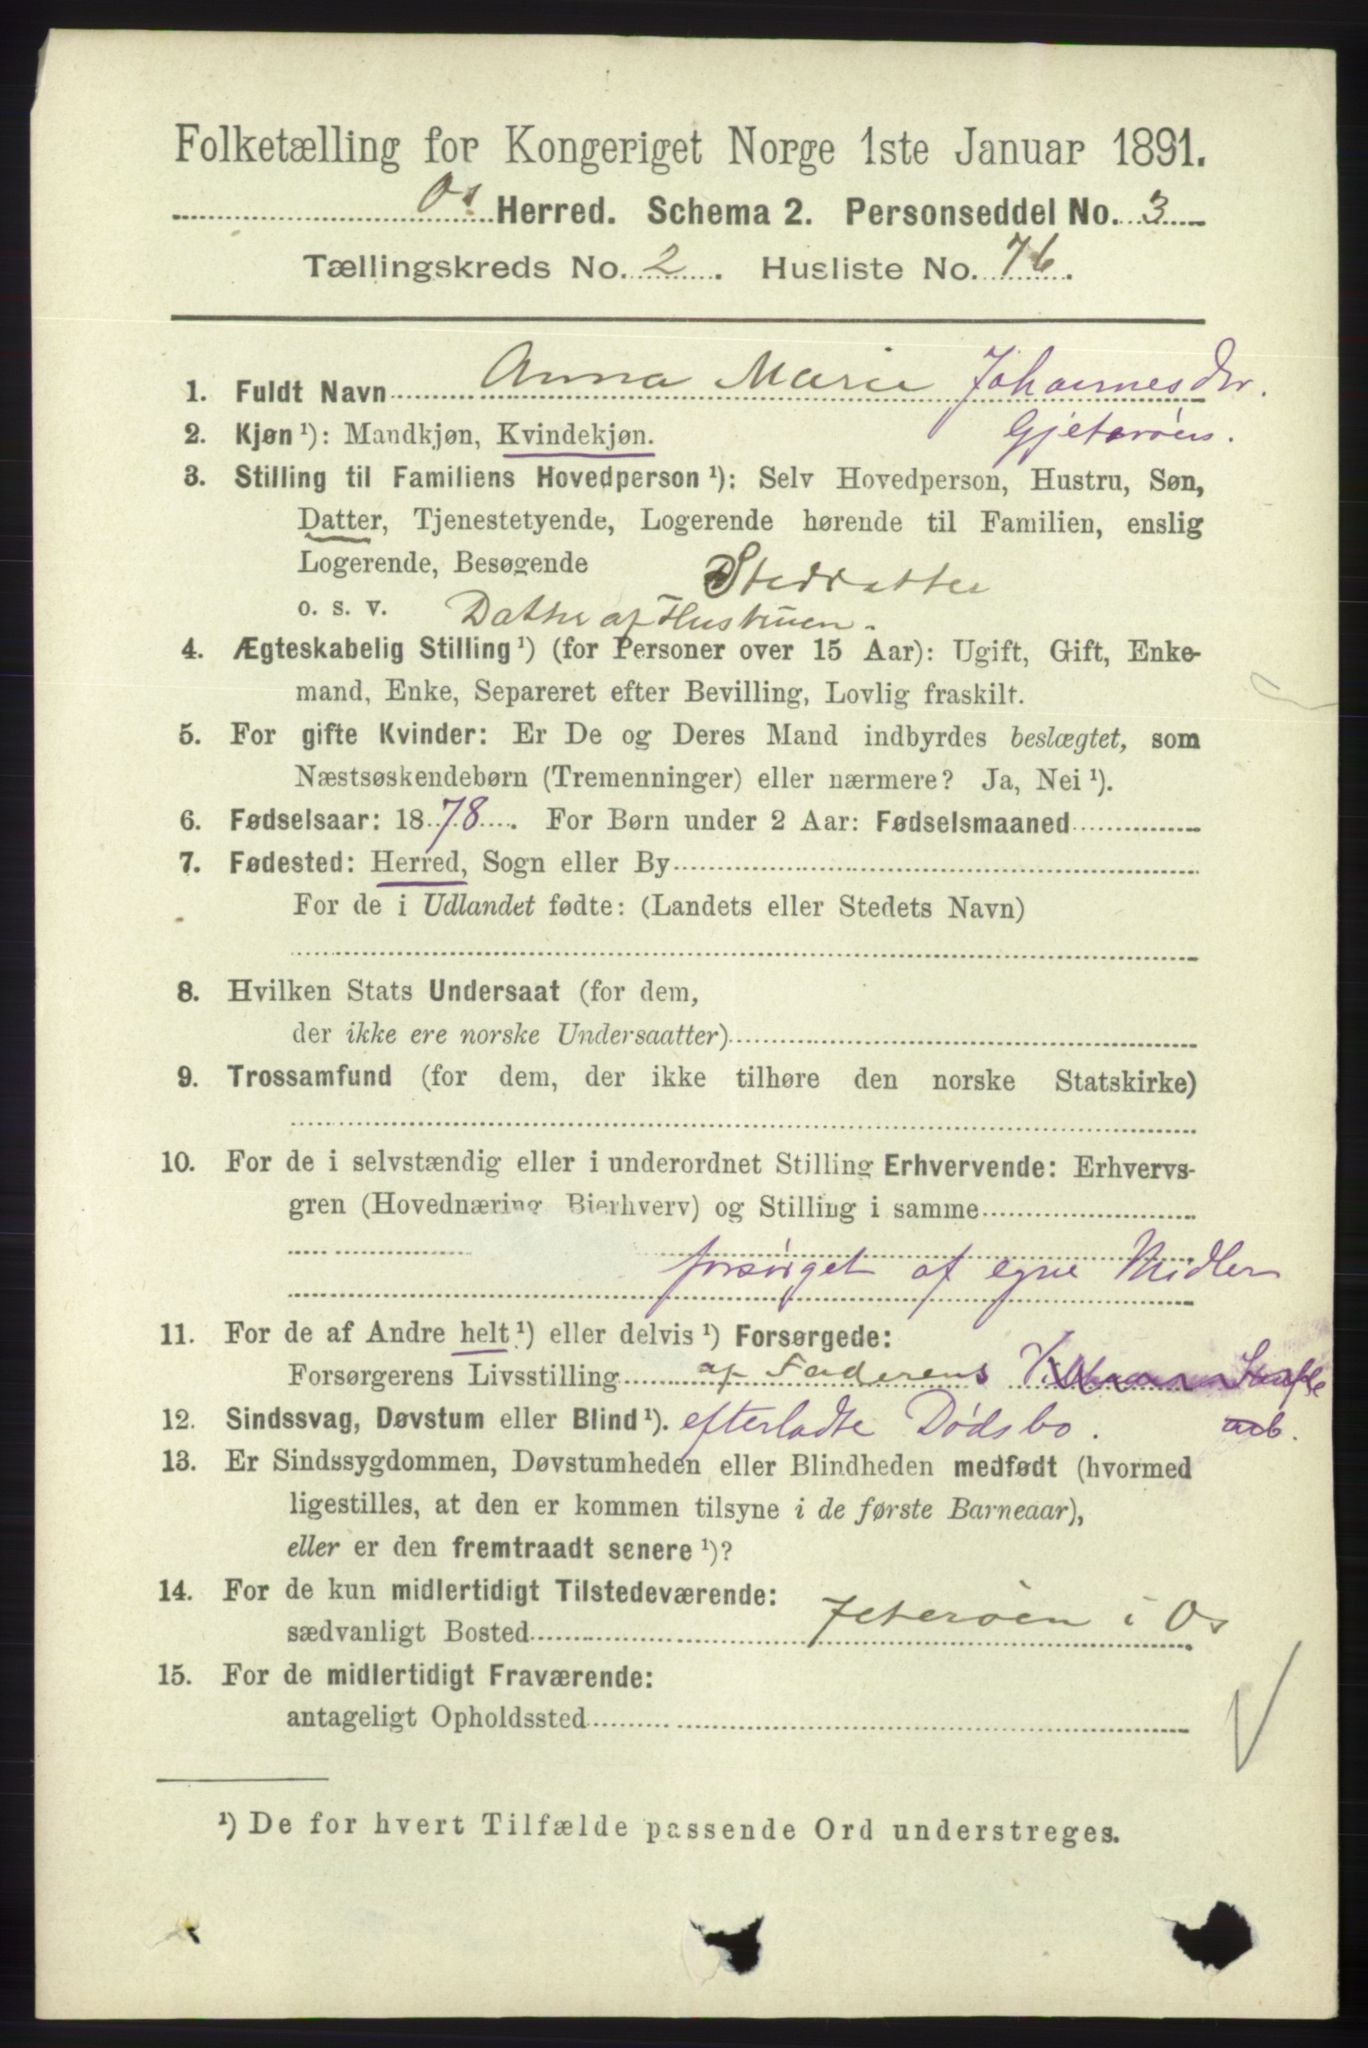 Folketælling for Kongeriget Norge 1ste Januar 1891.
Os Herred. Schema 2. Personseddel No. 3
Tællingskreds No. 2. Husliste No. 76.
1. Fuldt Navn Anna Marie Johannesdtr.
Gjeterøen.
2. Kjøn ¹): Mandkjøn, Kvindekjøn.
3. Stilling til Familiens Hovedperson ¹): Selv Hovedperson, Hustru, Søn,
Datter, Tjenestetyende, Logerende hørende til Familien, enslig
Logerende, Besøgende Steddatter
o. s. v. Datter af Hustruen.
4. Ægteskabelig Stilling ¹) (for Personer over 15 Aar): Ugift, Gift, Enke-
mand, Enke, Separeret efter Bevilling, Lovlig fraskilt.
5. For gifte Kvinder: Er De og Deres Mand indbyrdes beslægtet, som
Næstsøskendebørn (Tremenninger) eller nærmere? Ja, Nei ¹).
6. Fødselsaar: 1878. For Børn under 2 Aar: Fødselsmaaned
7. Fødested: Herred, Sogn eller By
For de i Udlandet fødte: (Landets eller Stedets Navn)
8. Hvilken Stats Undersaat (for dem,
der ikke ere norske Undersaatter)
9. Trossamfund (for dem, der ikke tilhøre den norske Statskirke)
10. For de i selvstændig eller i underordnet Stilling Erhvervende: Erhvervs-
gren (Hovednæring, Bierhverv) og Stilling i samme
forsørget af egne Midler
11. For de af Andre helt ¹) eller delvis ¹) Forsørgede:
Forsørgerens Livsstilling af Faderens
12. Sindssvag, Døvstum eller Blind ¹). efterladte Dødsbo. arb.
13. Er Sindssygdommen, Døvstumheden eller Blindheden medfødt (hvormed
ligestilles, at den er kommen tilsyne i de første Barneaar),
eller er den fremtraadt senere ¹)?
14. For de kun midlertidigt Tilstedeværende:
sædvanligt Bosted Jeterøen i Os
15. For de midlertidigt Fraværende:
antageligt Opholdssted
¹) De for hvert Tilfælde passende Ord understreges.